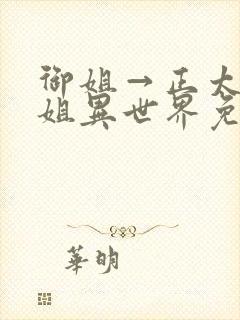 御姐→正太
姐異世界免
華明